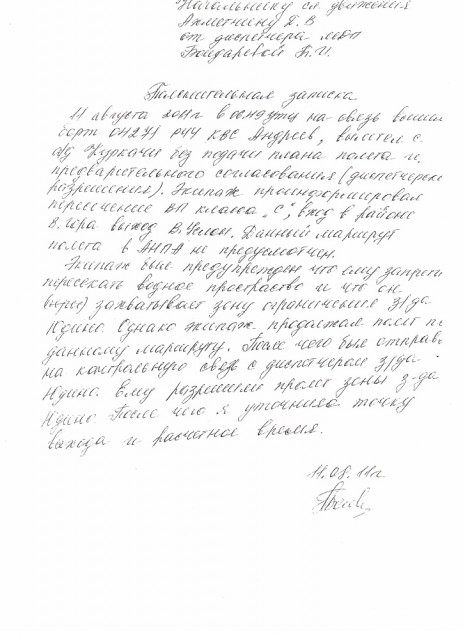 Начальнику сл движения
Ахметчину Д. В
от диспетчера МДП
Бондаревой Т. И.
Пояснительная записка
11 августа 2011г в на связь вышел
борт 04278 РЧЧ КВС Андреев, вылетел с
а/д Куркачи без подачи плана полета и
предварительного согласования (диспетчерск
разрешения). Экипаж проинформировал
пересечение ВП класса „С", вход в районе
В. Гора выход В. Услон. Данный маршрут
полета в АНПА не предусмотрен.
Экипаж был предупрежден что ему запрещ
пересекать водное пространство и что он
захватывает зону ограничения з/да
Юдино. Однако экипаж продолжал полет по
данному маршруту. После чего был отправл
на контрольную связь с диспетчером з/да
Юдино. Ему разрешили пролет зоны з-да
Юдино. После чего я уточнила точку
выхода и расчетное время.
11.08.11г